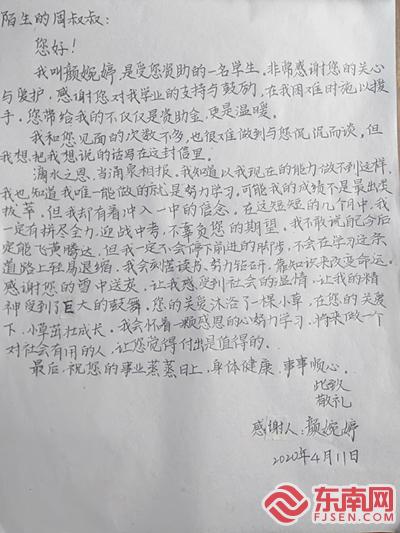 陌生的周叔叔：
您好！
我叫颜婉婷，是受您资助的一名学生。非常感谢您的关心
与爱护，感谢您对我学业的支持与鼓励，在我困难时施以援
手。您带给我的不仅仅是资助金，更是温暖。
我和您见面的次数不多，也很难做到与您侃侃而谈。但
我想把我想说的话写在这封信里。
滴水之恩，当涌泉相报。我知道以我现在的能力做不到这样，
我也知道我唯一能做的就是努力学习。可能我的成绩不是最出类
拔萃，但我却有着冲入一中的信念，在这短短的几个月中，我一
定有拼尽全力，迎战中考，不辜负您的期望。我不敢说自己今后一
定能飞黄腾达，但我一定不会停下前进的脚步，不会在学习这条
道路上轻易退缩。我会刻苦读书，努力钻研，靠知识来改变命运。
感谢您的雪中送炭，让我感受到社会的温情，让我的精
神受到了巨大的鼓舞。您的关爱沐浴了一棵小草，在您的关爱
下，小草茁壮成长。我会怀着一颗感恩的心努力学习，将来做一个
对社会有用的人，让您觉得付出是值得的。
最后，祝您的事业蒸蒸日上，身体健康，事事顺心。
此致
敬礼
感谢人：颜婉婷
2020年4月11日
东南网
FJSEN.COM